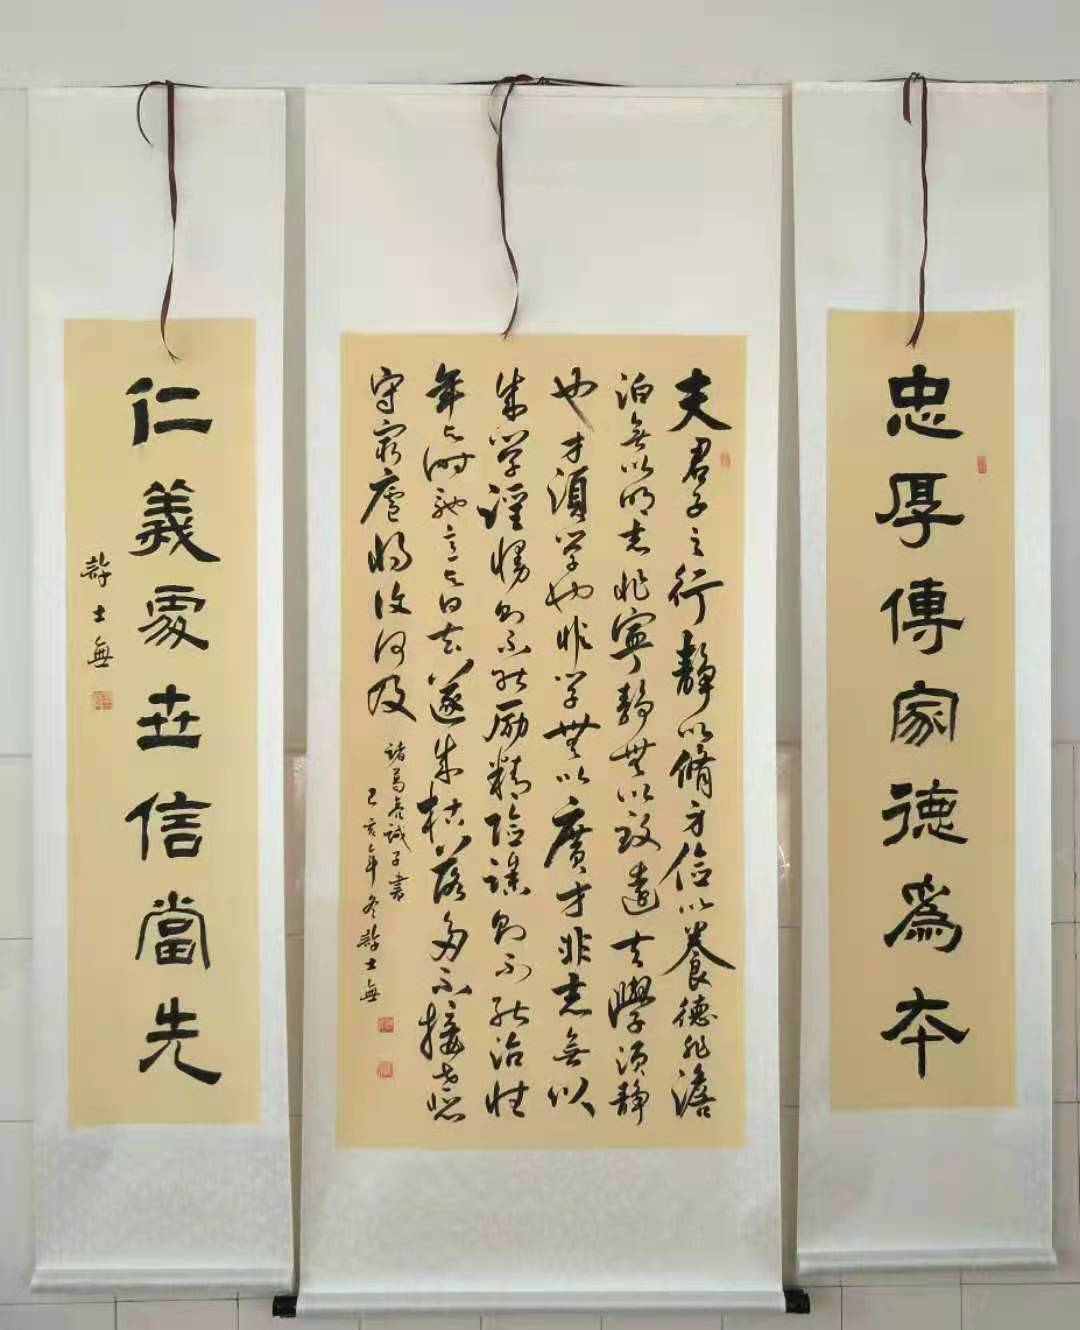 忠厚傳家德爲本
夫君子之行靜以脩身儉以養德非澹
泊無以明志非寧靜無以致遠夫學須靜
也才須學也非學無以廣才非志無以
成學淫慢則不能勵精險躁則不能治性
年与時馳意与日去遂成枯落多不接世悲
守窮廬將復何及
諸葛亮誡子書
己亥年冬許士無
仁義處世信當先
許士無